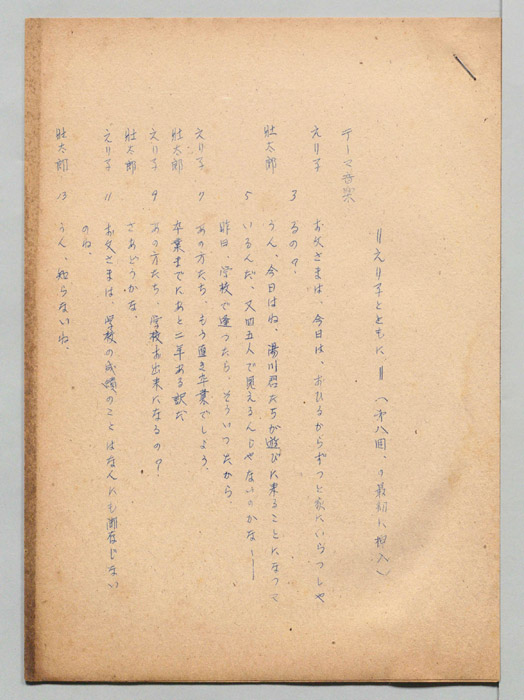 ＝えり子とともに＝（第八回、の最初に挿入）
テーマ音楽
えり子　お父さまは、今日は、おひるからずっと家にいらっしゃ
3　るの？
壮太郎　うん、今日はね、湯川君たちが遊びに来ることになって
5　いるんだ、又四五人で見えるんじゃないのかな——
昨日、学校で逢ったら、そういったから、
えり子　7　あの方たち、もう直き卒業でしょう、
壮太郎　卒業までにあと二年ある訳だ
えり子　9　あの方たち、学校お出来になるの？
壮太郎　さあどうかな、
えり子　11　お父さまは、学校の成績のことはなんにも御存じない
のね、
壮太郎　13　うん、知らないね、